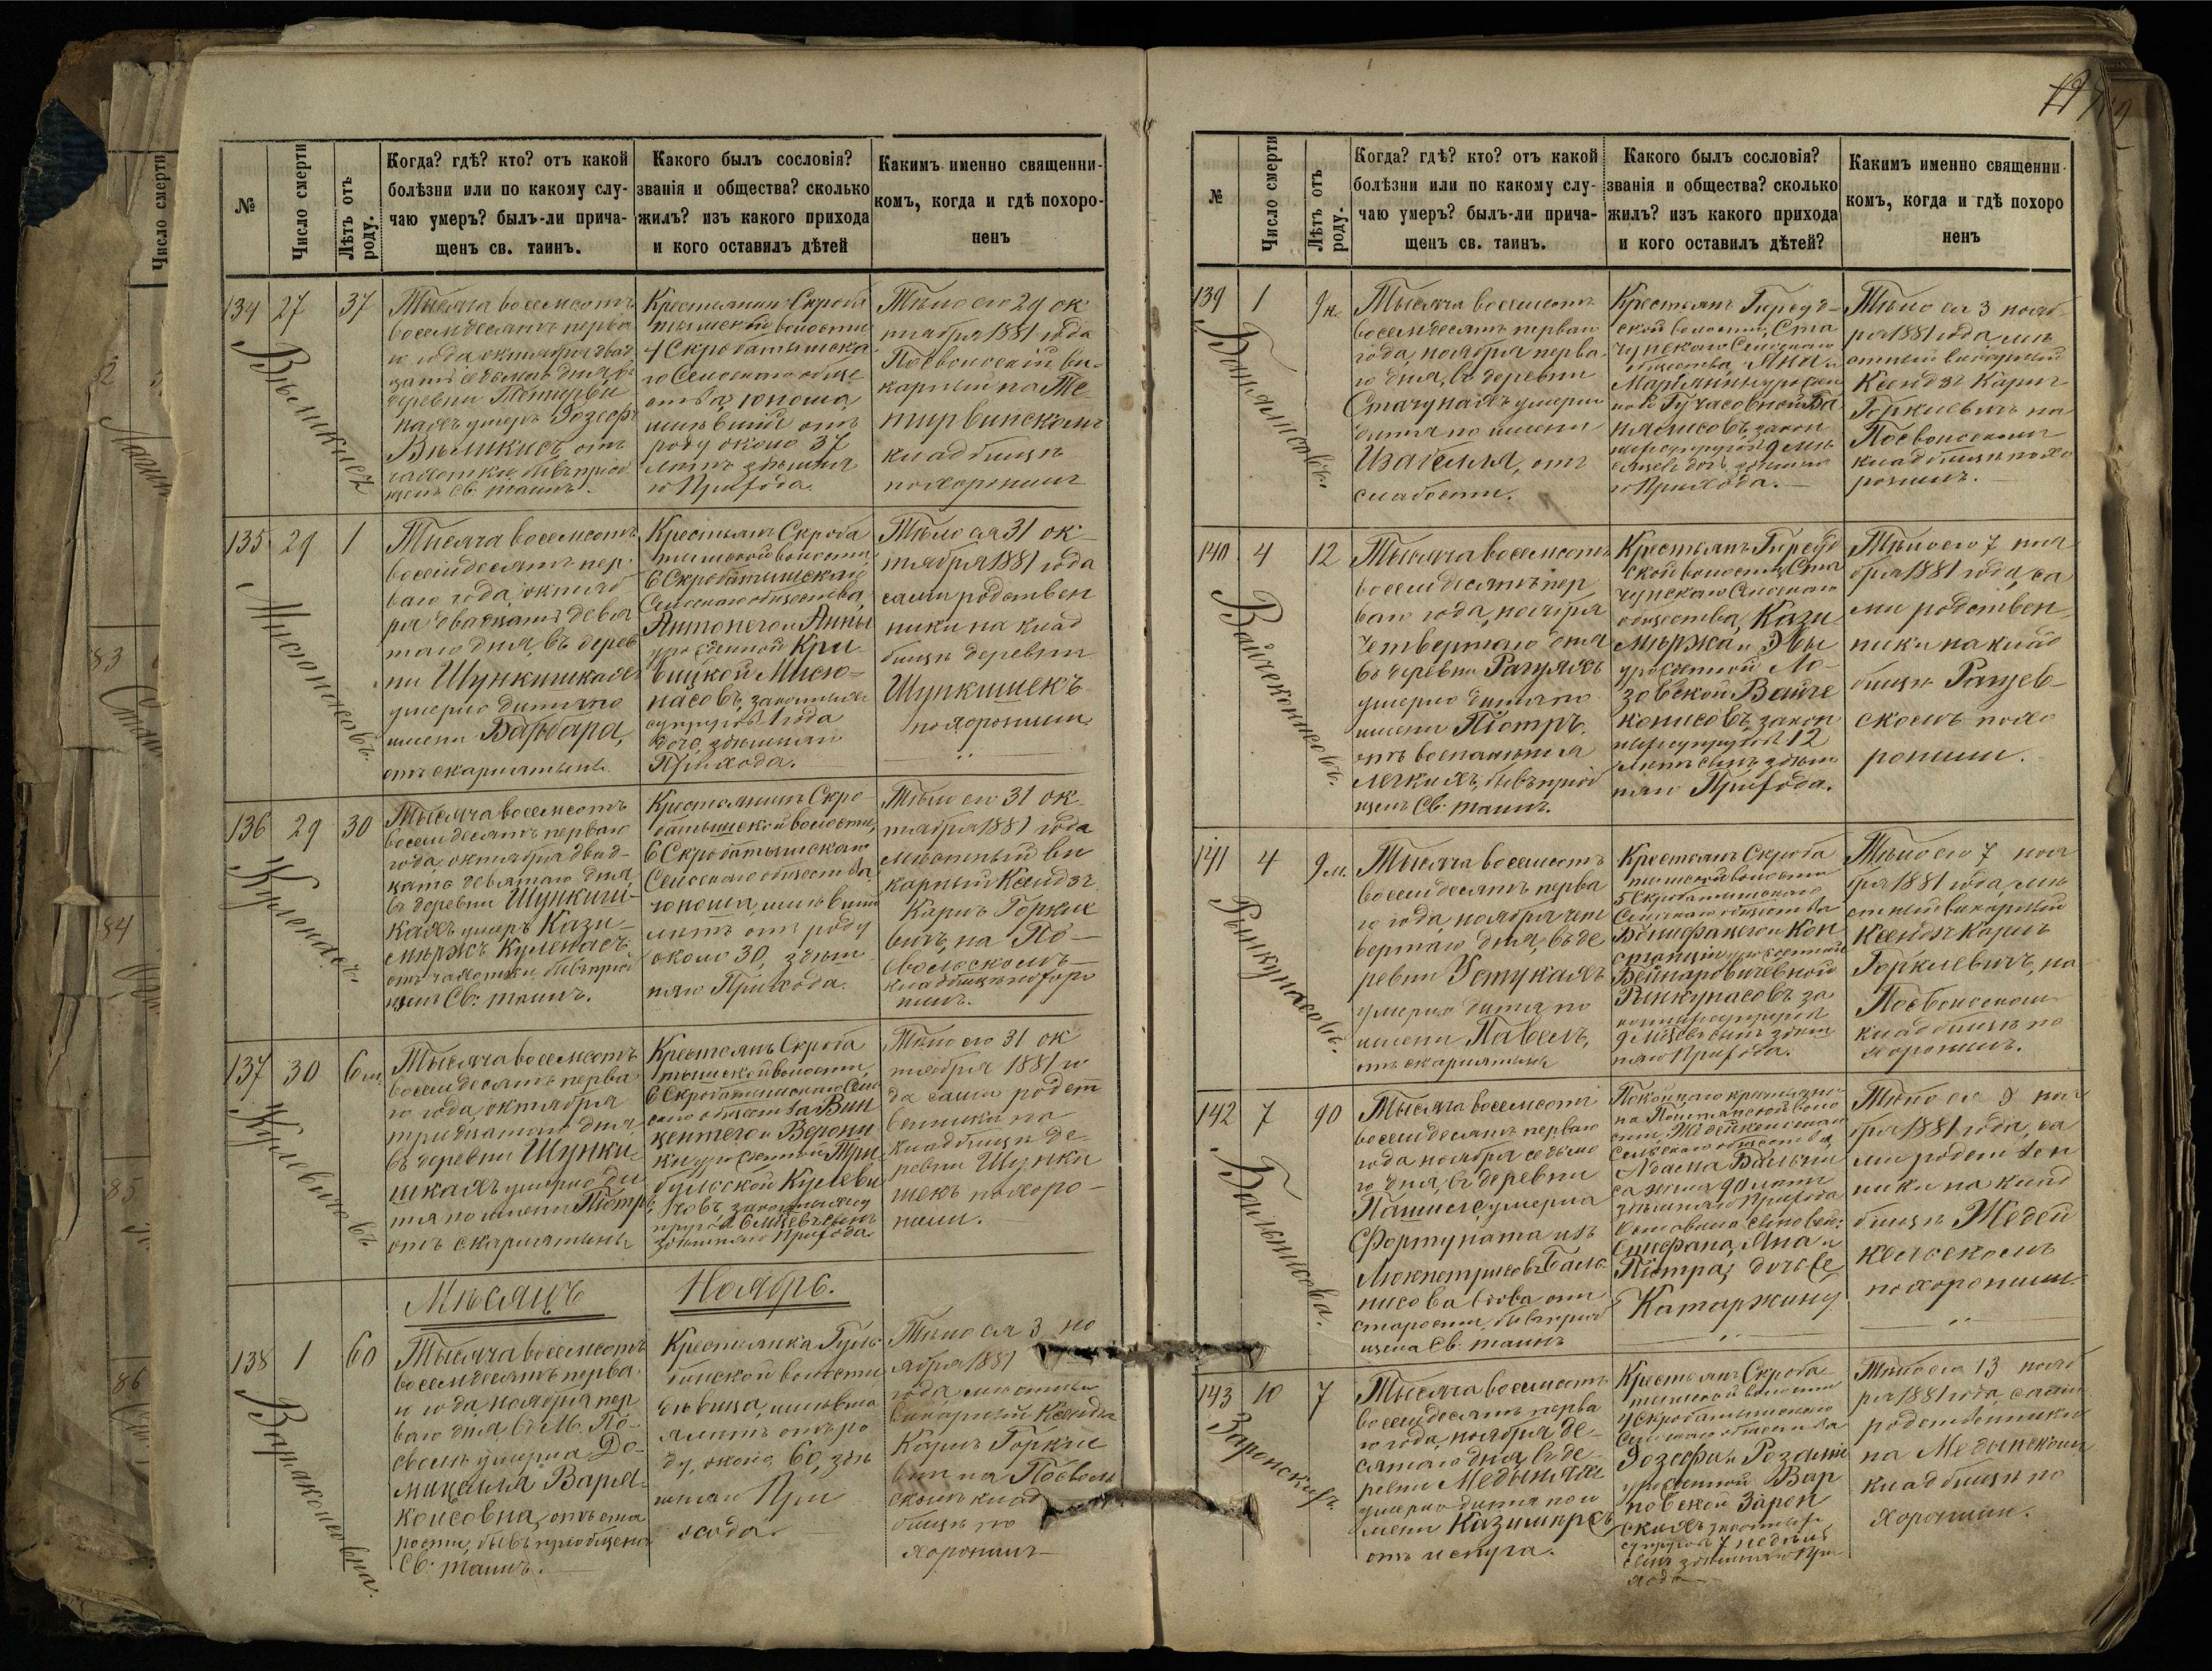 №
Число смерти
Лѣтъ отъ роду.
Когда? гдѣ? кто? отъ какой
болѣзни или по какому слу-
чаю умеръ? былъ-ли прича-
щенъ св. таинъ.
Какого былъ сословія?
званія и общества? сколько
жилъ? изъ какого прихода
и кого оставилъ дѣтей
Какимъ именно священни-
комъ, когда и гдѣ похоро-
ненъ
134
27
37
Тысяча восемсотъ
восемдесятъ перва
го года, октября двад
цать седьмого дня въ
деревни
умеръ Іозефъ
отъ
чахотки, бывъ пріоб
щенъ Св. таинъ.
Крестьянинъ Скроба
тышской волости
4 Скробатышска
го Сельскаго обще
ства, юноша,
имѣвшій отъ
роду около 37
лѣтъ здѣшня
го Прихода.
Тѣло его 29 ок
тября 1881 года
Посвольскій ви-
карный на
кладбищѣ
похоронилъ
135
29
1
Мисюнасовъ.
Тысяча восемсотъ
восемдесятъ пер
ваго года, октяб
ря двадцать девя
таго дня, въ дерев
ни Шункишкахъ
умерло дитя по
имени Барбара,
отъ скарлятыны.
Крестьянъ Скроба
тышской волости
6 Скробатышскаго
Сельскаго общества,
Антонего и Анны
урожденной Кри
вицкой Мисю-
насовъ, законныхъ
супруговъ 1 года
дочь, здѣшняго
Прихода.
Тѣло ея 31 ок-
тября 1881 года
сами родствен
ники на клад
бищѣ деревни
Шункишекъ
похоронили.
136
29
30
Куленасъ.
Тысяча восемсотъ
восемдесятъ перваго
года, октября двад-
цать девятаго дня,
въ деревни Шункиш-
кахъ умеръ Кази-
мѣржъ Куленасъ
отъ чахотки, бывъ пріоб
щенъ Св. таинъ.
Крестьянинъ Скро-
батышской волости,
6 Скробатышскаго
Сельскаго общества,
юноша, имѣвшій
лѣтъ отъ роду
около 30, здѣш
няго Прихода.
Тѣло его 31 ок-
тября 1881 года
мѣстный ви
карный Ксендзъ
Карлъ Горкле
вичъ, на По-
свольскомъ
кладбищѣ похоро
нилъ.
137
30
6 м.
Кулевичовъ
Тысяча восемсотъ
восемдесятъ перва
го года, октября
тридцатаго дня,
въ деревни Шунки-
шкахъ умерло ди
тя по имени Піотръ
отъ скарлятыны
Крестьянъ Скроба
тышской волости,
6 Скробатышскаго Сель
скаго общества Вин
центего и Верони
ки урожденной
Кулеви
човъ, законныхъ су
пруговъ 6 мѣсяцевъ сынъ
здѣшняго Прихода
Тѣло его 31 ок
тября 1881 го
да сами родст
венники на
кладбищѣ де-
ревни Шунки
шекъ похоро-
нили.
Мѣсяцъ Ноябрь.
138
1
60
Варнаконсовна.
Тысяча восемсотъ
восемдесятъ перва
го года, ноября пер
ваго дня, въ М. По-
сволѣ умерла До-
мицелля Варна
консовна, отъ ста
рости, бывъ пріобщена
Св. таинъ.
Крестьянка
волости
дѣвица, имѣвша
я лѣтъ отъ ро
ду, около 60, здѣ
шняго При
хода.
Тѣло ея 3 но
ября 1881
года, мѣстный
викарный Ксендзъ
Карлъ Горкле
вичъ на Посволь
скомъ клад
бищѣ по
хоронилъ
№
Число смерти
Лѣтъ отъ роду.
Когда? гдѣ? кто? отъ какой
болѣзни или по какому слу-
чаю умеръ? былъ-ли прича-
щенъ св. таинъ.
Какого былъ сословія?
званія и общества? сколько
жилъ? изъ какого прихода
и кого оставилъ дѣтей?
Какимъ именно священни-
комъ, когда и гдѣ похоро
ненъ
139
1
Тысяча восемсотъ
восемдесятъ перваго
года, ноября перва-
го дня, въ деревни
Стачунахъ умерло
дитя по имени
Изабелля, отъ
слабости.
Крестьянъ
ской волости, Ста
чунскаго Сельскаго
общества, Яна и
Марьянны урожден
ной
законныхъ
супруговъ 9
дочь, здѣшня
го Прихода.
Тѣло ея 3 нояб
ря 1881 года, мѣ
стный викарный
Ксендзъ Карлъ
Горклевичъ на
Посвольскомъ
кладбищѣ похо
ронилъ.
140
4
12
Вайчеконисовъ.
Тысяча восемсотъ
восемдесятъ пер
ваго года, ноября
четвертаго дня
въ деревни Рагуляхъ
умерло дитя по
имени Піотръ,
отъ воспаленія
легкихъ, бывъ пріоб
щенъ Св. таинъ.
Крестьянъ
ской волости, Ста
чунскаго Сельскаго
общества, Кази
мѣржа и Эвы
урожденной Ло-
зовской Вайче
конисовъ, закон
ныхъ супруговъ 12
лѣтъ сынъ, здѣш
няго Прихода.
Тѣло его 7 ноя
бря 1881 года, са
ми родствен
ники на клад
бищѣ
скомъ похо
ронили.
141
4
9 м.
Ринкунасовъ.
Тысяча восемсотъ
восемдесятъ перва
го года, ноября чет
вертаго дня, въ де
ревни Устукахъ
умерло дитя по
имени Павелъ,
отъ скарлятыны
Крестьянъ Скроба
тышской волости
5 Скробатышскаго
Сельскаго общества
Бонифацего и Кон
станціи урожденной
Бейнаровичевной
Ринкунасовъ за
конныхъ супруговъ
9 мѣсяцевъ сынъ здѣш
няго Прихода.
Тѣло его 7 ноя
бря 1881 года, мѣ
стный викарный
Ксендзъ Карлъ
Горклевичъ, на
Посвольскомъ
кладбищѣ по
хоронилъ.
142
7
90
Бальнисова.
Тысяча восемсотъ
восемдесятъ перваго
года ноября седьма
го дня, въ деревни
умерла
Фортуната изъ
Баль
нисова вдова отъ
старости, бывъ пріоб
щена Св. таинъ
Покойнаго крестьяни
на
волости,
Сельскаго общества,
Адама Бальни
са жена 90 лѣтъ
здѣшняго Прихода
Оставила сыновей:
Стефана, Яна и
Піотра, дочь
Катаржину
Тѣло ея 9 ноя
бря 1881 года, са
ми родствен
ники на клад
бищѣ Жедей
кельскомъ
похоронили.
143
10
7
Заронскихъ
Тысяча восемсотъ
восемдесятъ перва
го года, ноября де-
сятаго дня, въ де-
ревни
умерло дитя по и
мени Казимиръ
отъ испуга.
Крестьянъ Скроба
тышской волости
4 Скробатышскаго
Сельскаго общества
Іозефа и Розаліи
урожденной Вар
новской Зарон
скихъ, законныхъ
супруговъ 7 недѣль
сынъ здѣшняго При
хода
Тѣло его 13 нояб
ря 1881 года, сами
родственники
на Медынскомъ
кладбищѣ по
хоронили.